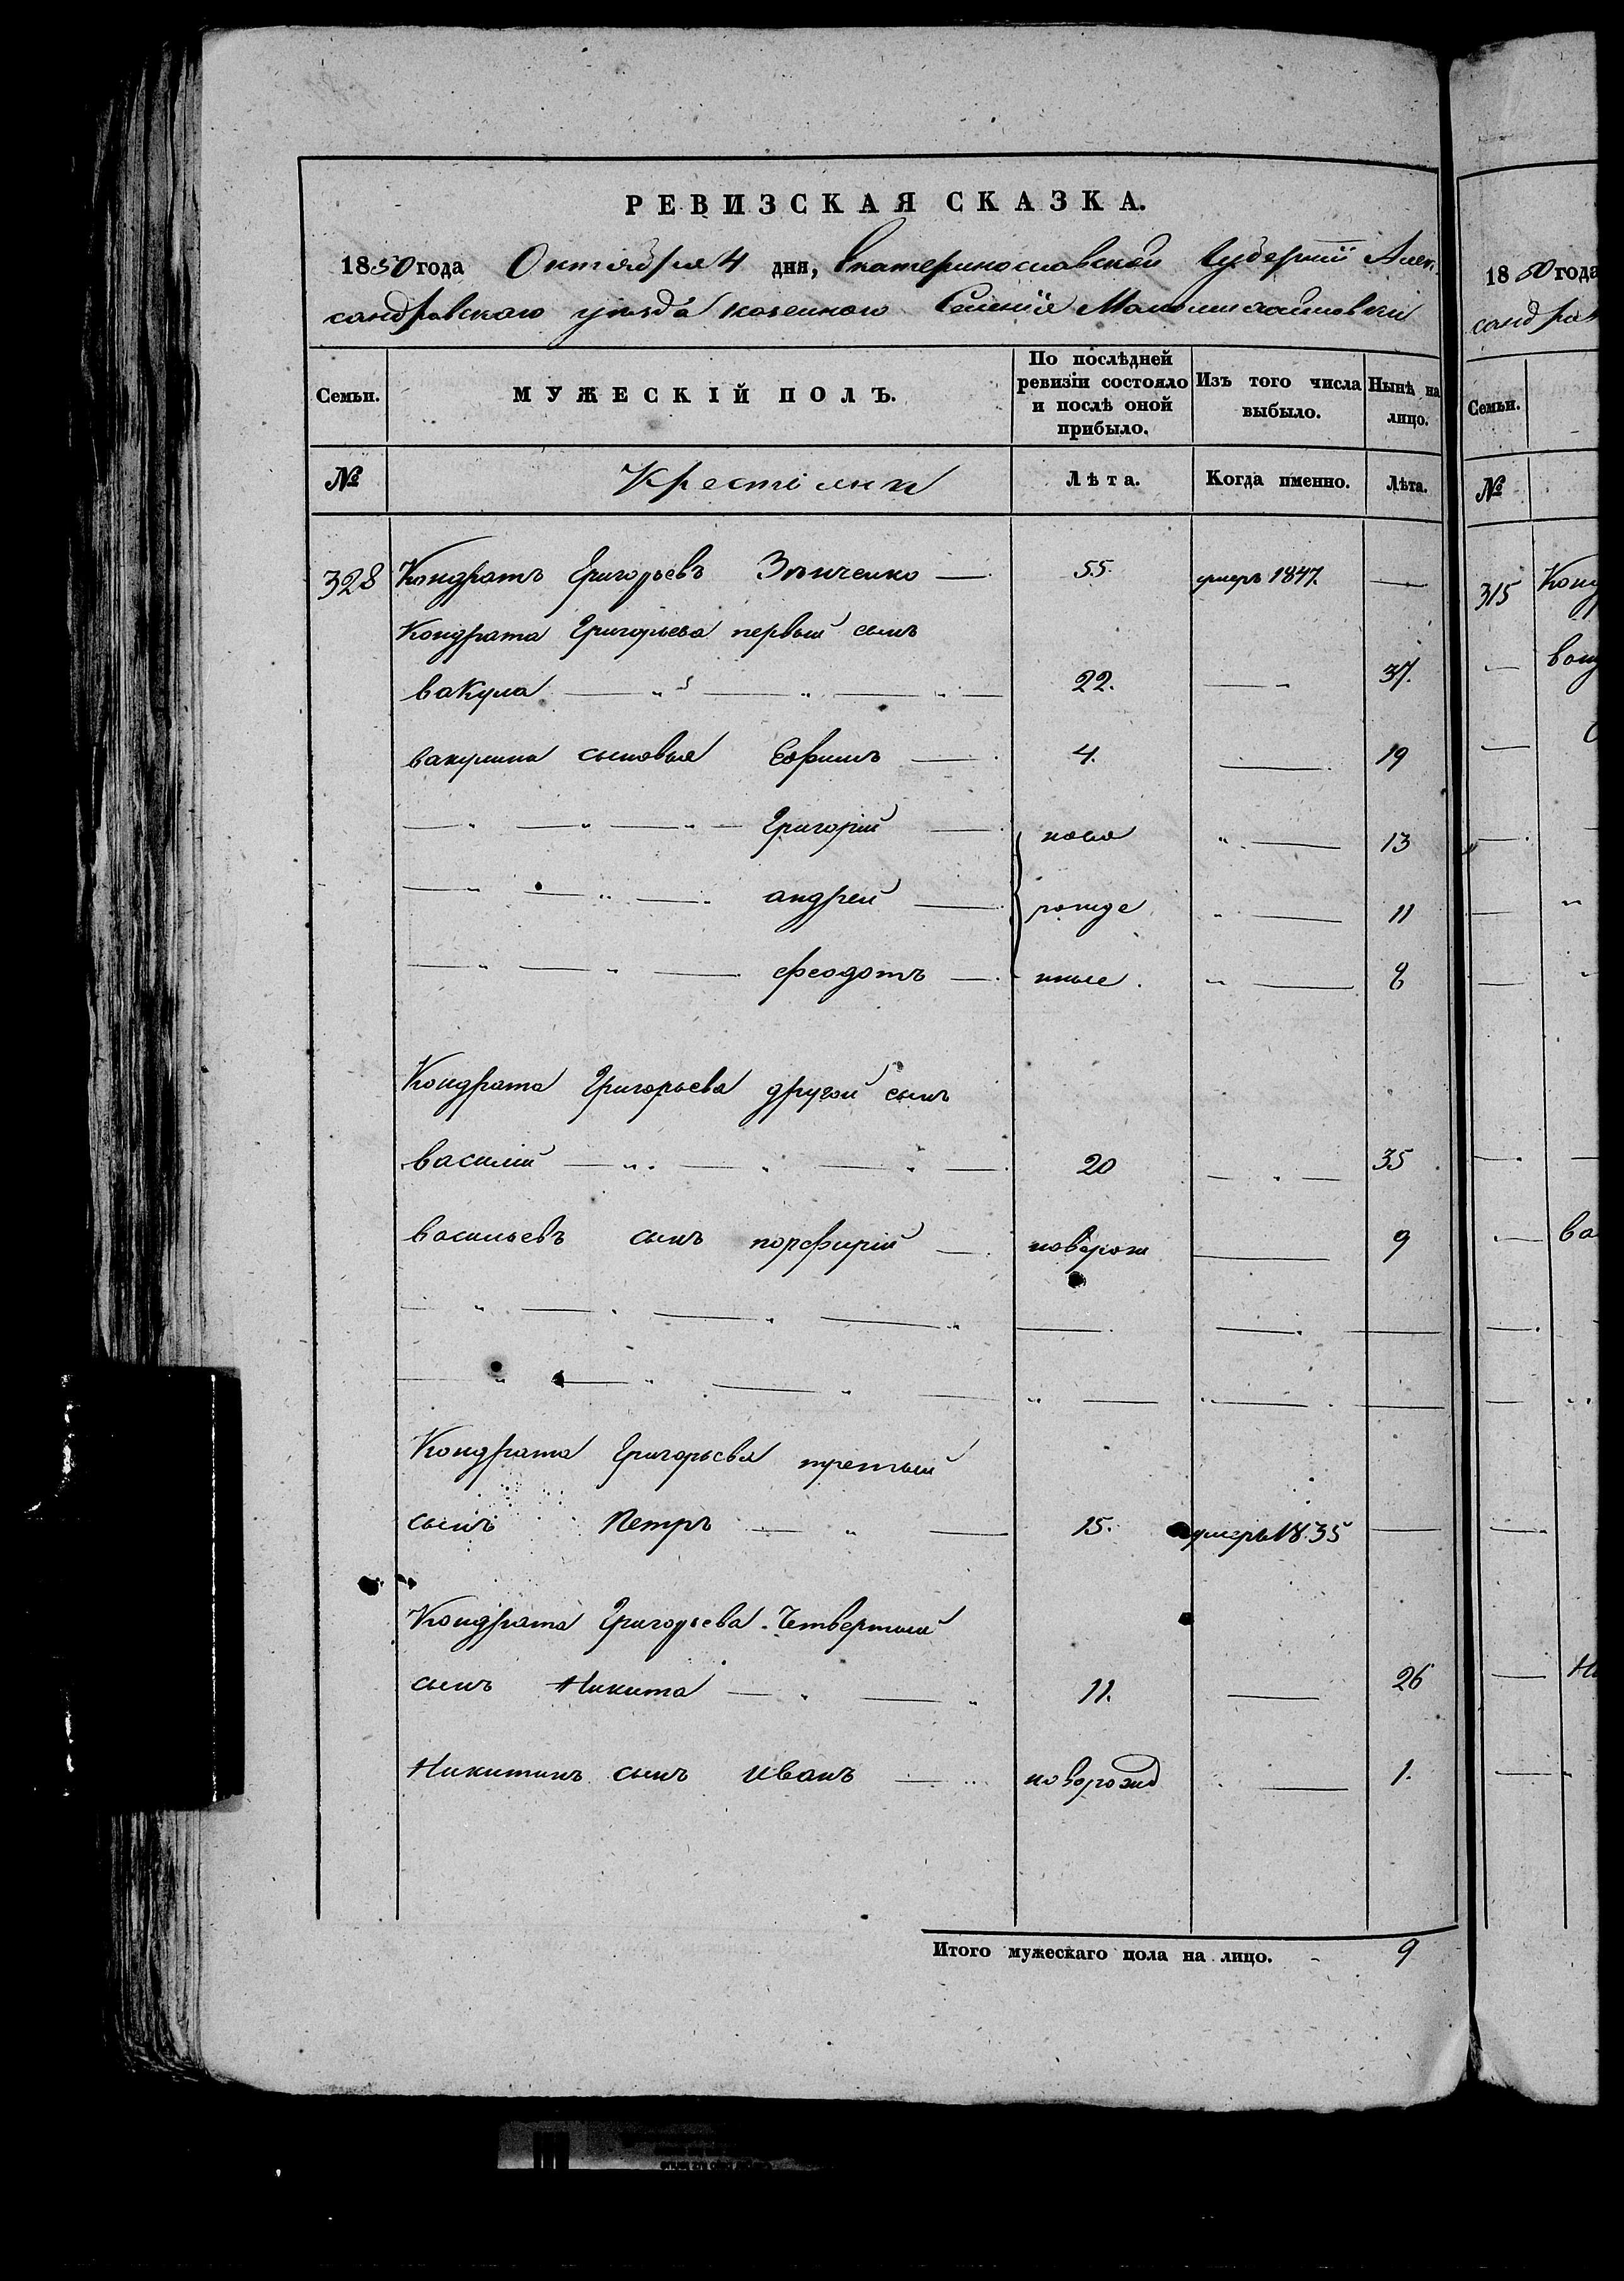 РЕВИЗСКАЯ СКАЗКА.
1850 года Октября 4 дня, Екатеринославской Губерніи Алек-
сандровскаго уѣзда казеннаго Селенія Маломихайловки
Семьи. МУЖЕСКІЙ ПОЛЪ. По послѣдней ревизіи состояло и послѣ оной прибыло. Изъ того числа выбыло. Нынѣ на лицо.
№ Крестіяни Лѣта. Когда именно. Лѣта.
328 Кондратъ Григорьевъ Зѣнченко — 55. умеръ 1847. —
Кондрата Григорьева первый сынъ
вакула — " — " — " — 22. — " 37.
вакулина сыновья Ефимъ — 4. — 19
— " — " — " — Григорій — ново " — 13
— " — " — андрей — рожде " — 11
— " — " — феодотъ — нные. " — 8
Кондрата Григорьева другой сынъ
василій — " — " — " — 20 — " — 35
васильевъ сынъ порфирій — новорож — 9
— " — " — " — " — — —
— " — " — " — " — " — —
Кондрата Григорьева третьій
сынъ Петръ — " — 15. умеръ 1835 —
Кондрата Григорьева Четвертый
сынъ Никита — " — " 11. — 26
Никитинъ сынъ Иванъ — новорожд " — 1.
Итого мужескаго пола на лицо. - 9
1850 года
сандров
Семьи.
№
315 Конд
ва
Ни